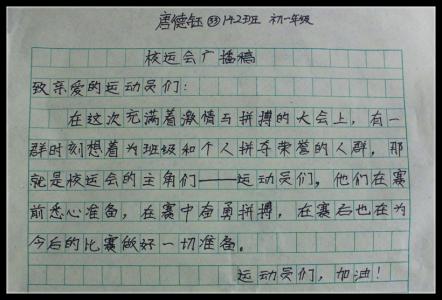 唐德钰 ㉝ 142班 初一年级
校运会广播稿
致亲爱的运动员们：
在这次充满着激情与拼搏的大会上，有一
群时刻想着为班级和个人拼夺荣誉的人群，那
就是校运会的主角们——运动员们，他们在赛
前悉心准备，在赛中奋勇拼搏，在赛后也在为
今后的比赛做好一切准备。
运动员们，加油！